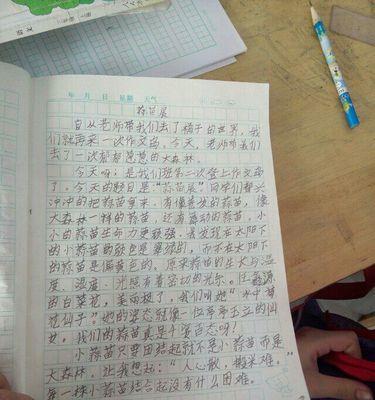 年 月 日 星期 天气
蒜苗展
自从老师带我们去了橘子的世界,我
们就再来一次作文商。今天,老师带我们
去了一次郁郁葱葱的大森林。
今天呀,是我们班第二次登上作文商
了。今天的题目是“蒜苗展”同学们都兴
冲冲的把蒜苗拿来。有像卷发的蒜苗,像
大森林一样的蒜苗,还有舞动的蒜苗,小
小的蒜苗生命力更顽强。我发现在太阳下
的小蒜苗的颜色是翠绿的,而不在太阳下
的蒜苗是偏黄色的。原来蒜苗的生长与温
度、湿度、光照有着密切的关系。任
的白菜花,美丽极了,我们叫她“水中菊
花仙子”她的姿态就像一位亭亭玉立的仙
女。我们的蒜苗真是千姿百态呀!
小蒜苗只要团结起就不是小蒜苗而是
大森林。让我想起:“人心散,搬米难。”
每一株小蒜苗结合起没有什么困难。